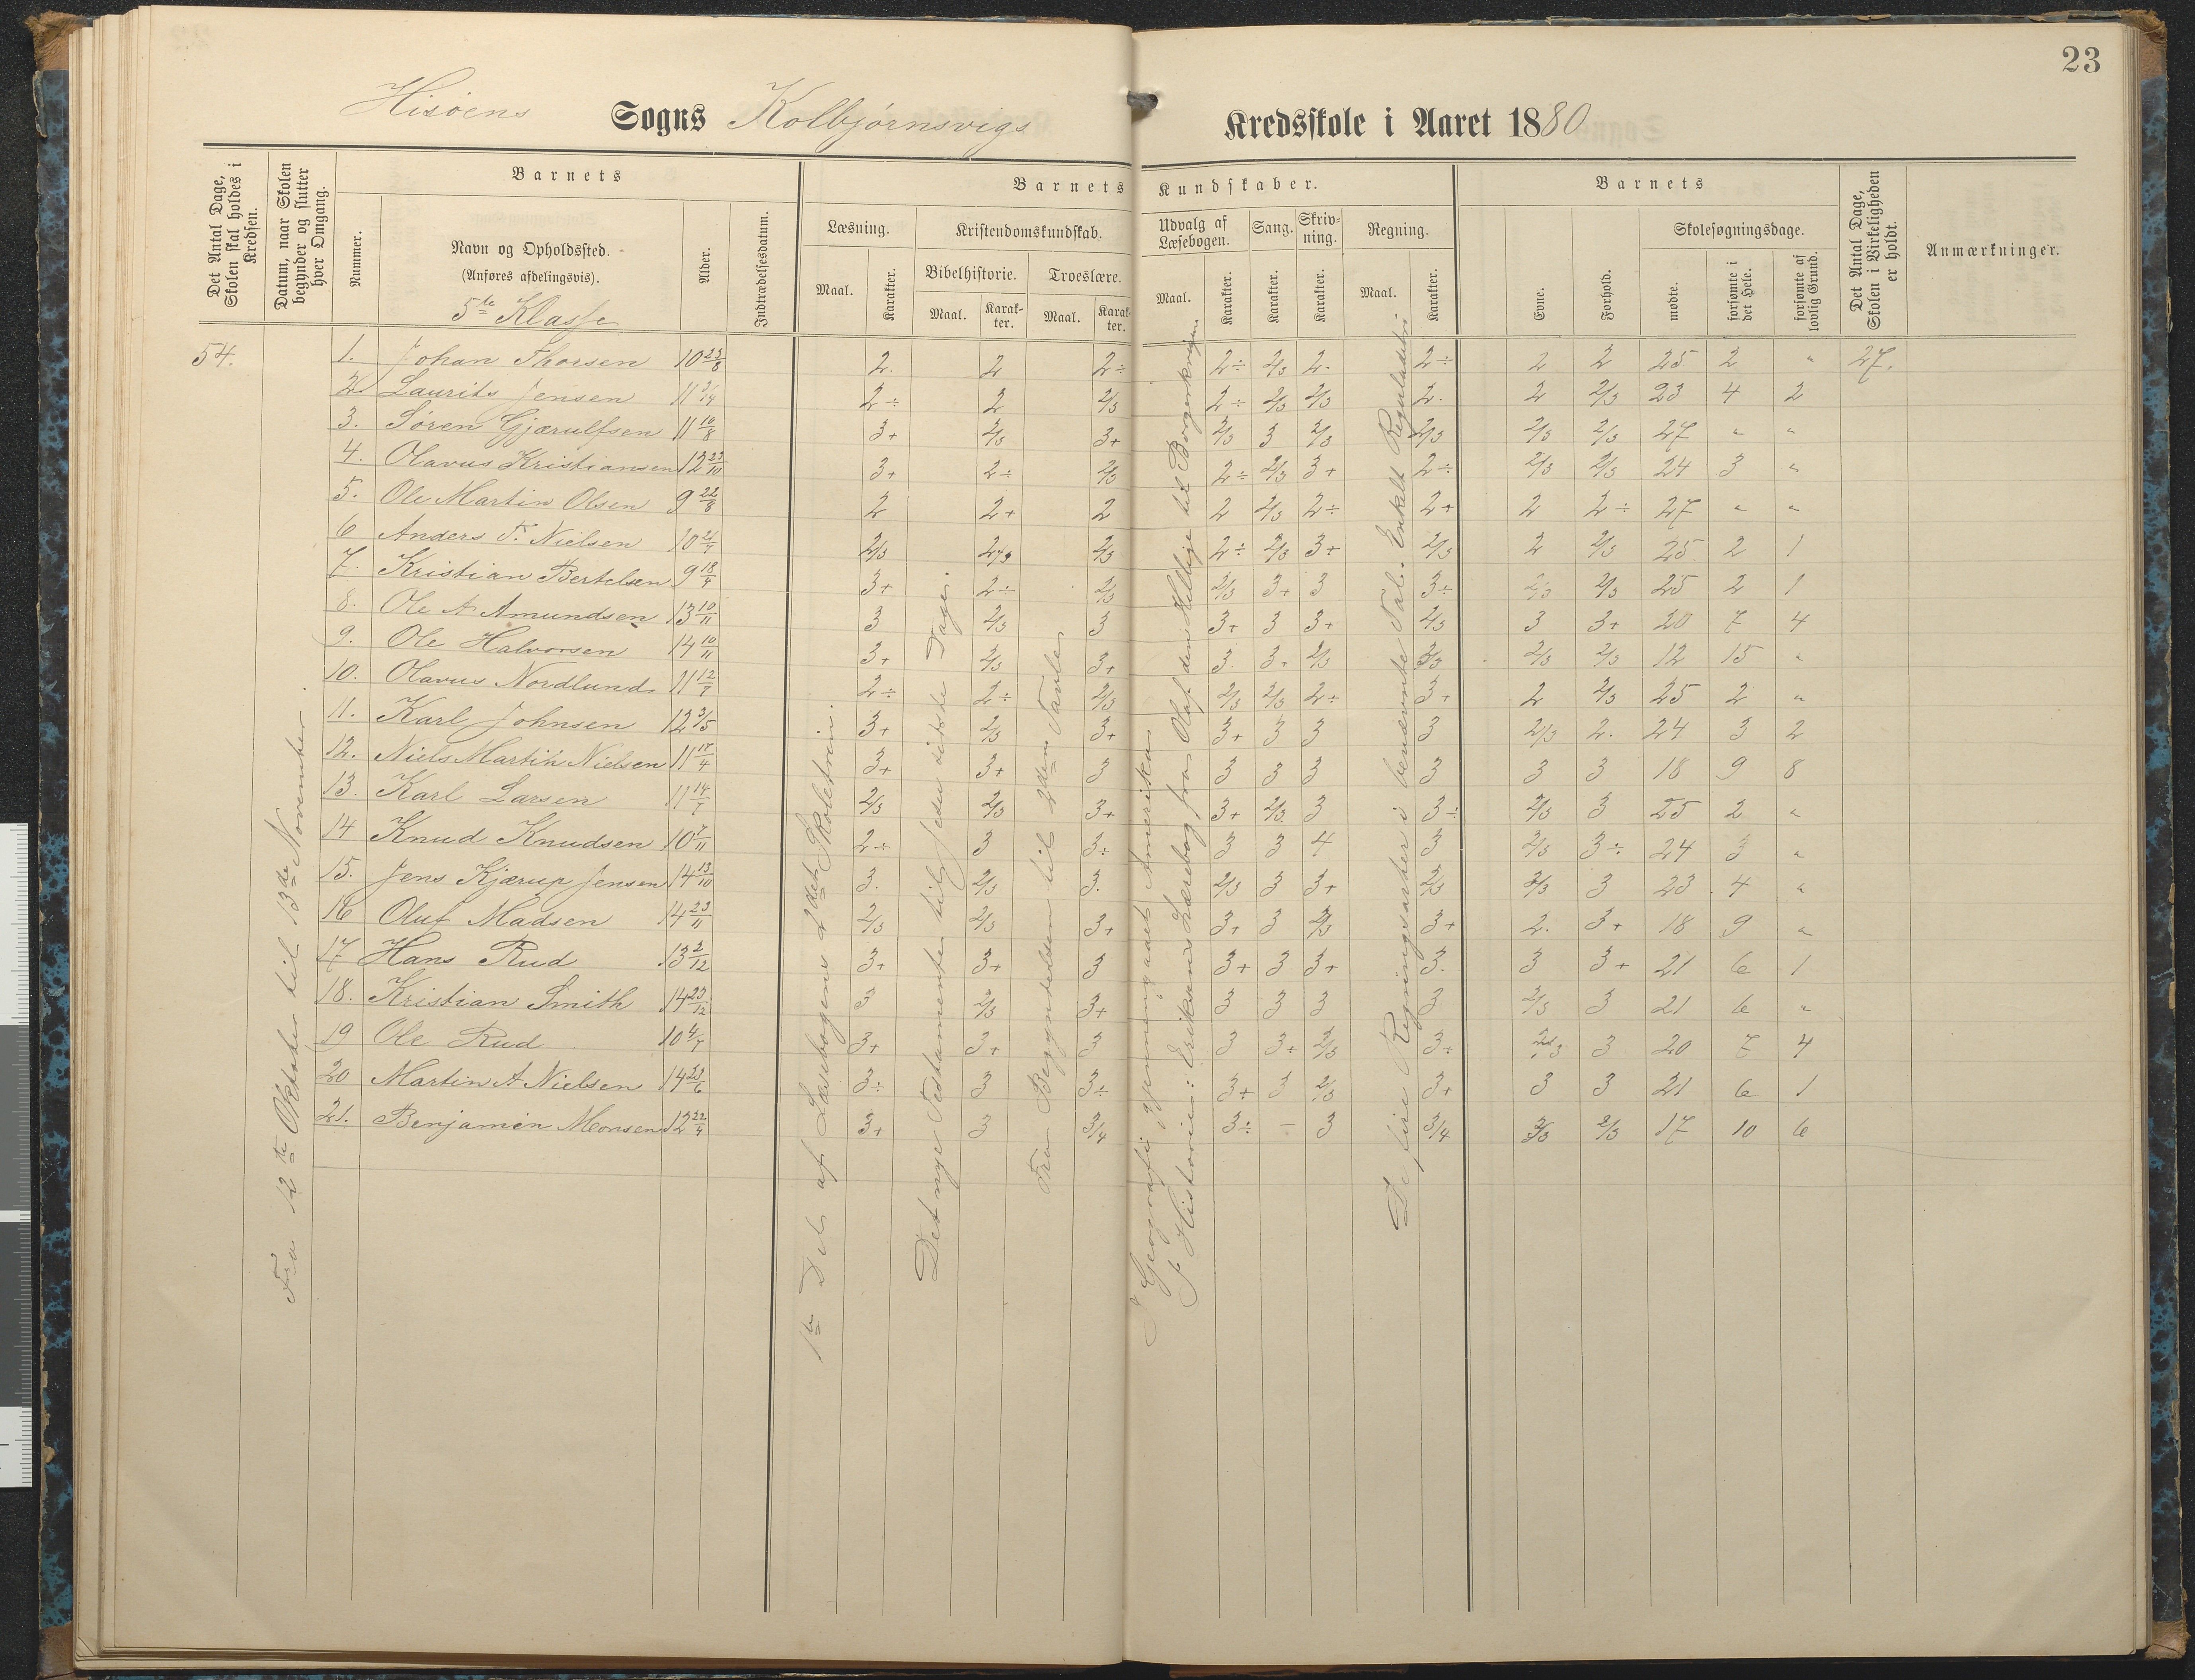 23
Hisøens Sogns Kolbjørnsvigs Kredsskole i Aaret 1880
Det Antal Dage, Skolen skal holdes i Kredsen.
Datum, naar Skolen begynder og slutter hver Omgang.
Barnets
Nummer.
Navn og Opholdssted.
(Anføres afdelingsvis).
5te Klasse
Alder.
Indtrædelsesdatum.
Barnets Kundskaber.
Læsning.
Maal.
Karakter.
Kristendomskundskab.
Bibelhistorie.
Maal.
Karakter.
Troeslære.
Maal.
Karakter.
Udvalg af Læsebogen.
Maal.
Karakter.
Sang.
Karakter.
Skrivning.
Karakter.
Regning.
Maal.
Karakter.
Barnets
Evne.
Forhold.
Skolesøgningsdage.
mødte.
forsømte i det Hele.
forsømte af lovlig Grund.
Det Antal Dage, Skolen i Virkeligheden er holdt.
Anmærkninger.
54. 1. Johan Thorsen 10 23/8 2. 2 2÷ 2÷ 2/3 2. 2÷ 2 2 25 2 " 27.
2. Laurits Jensen 11 2÷ 2 2/3 2÷ 2/3 2/3 2. 2 2/3 23 4 2
3. Søren Gjærulfsen 11 10/8 3+ 2/3 3+ 2/3 3 2/3 2/3 2/3 2/3 27 " "
4. Olavus Kristiansen 12 23/10 3+ 2÷ 2/3 2÷ 2/3 3+ 2÷ 2/3 2/3 24 3 "
5. Ole Martin Olsen 9 22/8 2 2+ 2 2 2/3 2÷ 2+ 2 2÷ 27 " "
6 Anders F. Nielsen 10 2/3 2/3 2/3 2÷ 2/3 3+ 2/3 2 2/3 25 2 1
7. Kristian Bertelsen 9 18/4 3+ 2÷ 2/3 2/3 3+ 3 3÷ 2/3 2/3 25 2 1
8. Ole A Amundsen 13 10/11 3 2/3 3 3+ 3 3+ 2/3 3 3+ 20 7 4
9. Ole Halvorsen 14 10/11 3+ 2/3 3+ 3. 3+ 2/3 2/3 2/3 12 15 "
10. Olavus Nordlund 11 12/7 2÷ 2÷ 2/3 2/3 2/3 2÷ 3+ 2 2/3 25 2 "
11. Karl Johnsen 12 3/5 3+ 2/3 3+ 3+ 3 3 3 2/3 2. 24 3 2
12. Niels Martin Nielsen 11 3+ 3+ 3 3 3 3 3 3 3 18 9 8
13. Karl Larsen 11 2/3 2/3 3+ 3+ 2/3 3 3÷ 2/3 3 25 2 "
14 Knud Knudsen 10 7/11 2÷ 3 3÷ 3 3 4 3 2/3 3÷ 24 3 "
15. Jens Kjærup Jensen 14 13/10 3. 2/3 3. 2/3 3 3+ 2/3 2/3 3 23. 4 "
16 Oluf Madsen 14 23/11 2/3 2/3 3+ 3+ 3 2/3 3+ 2. 3+ 18 9 "
17 Hans Rud 13 2/12 3+ 3+ 3 3+ 3 3+ 3. 3 3+ 21 6 1
18. Kristian Smith 14 23/12 3 2/3 3+ 3 3 3 3 2/3 3 21 6 "
19 Ole Rud 10 4/7 3+ 3+ 3 3 3+ 2/3 3÷ 2/3 3 20 7 4
20 Martin A Nielsen 14 23/6 3÷ 3 3÷ 3+ 3 2/3 3+ 3 3 21 6 1
21. Benjamin Monsen 12 22/4 3+ 3 3/4 3÷ — 3 3/4 2/3 17 10 6
Fra 12te Oktober til 13de November.
1ste Del af Læsebogens 2det Skoletrin.
Det nye Testamente til Jesu sidste Dage.
Fra Begyndelsen til 2den Tavle.
I Geografi gjennemgaaet Amerika.
I Historien: Eriksens Lærebog fra Olaf den Hellige til Borgerkrigen.
De fire Regningsarter i benævnte Tal. Enkelt Reguladetri